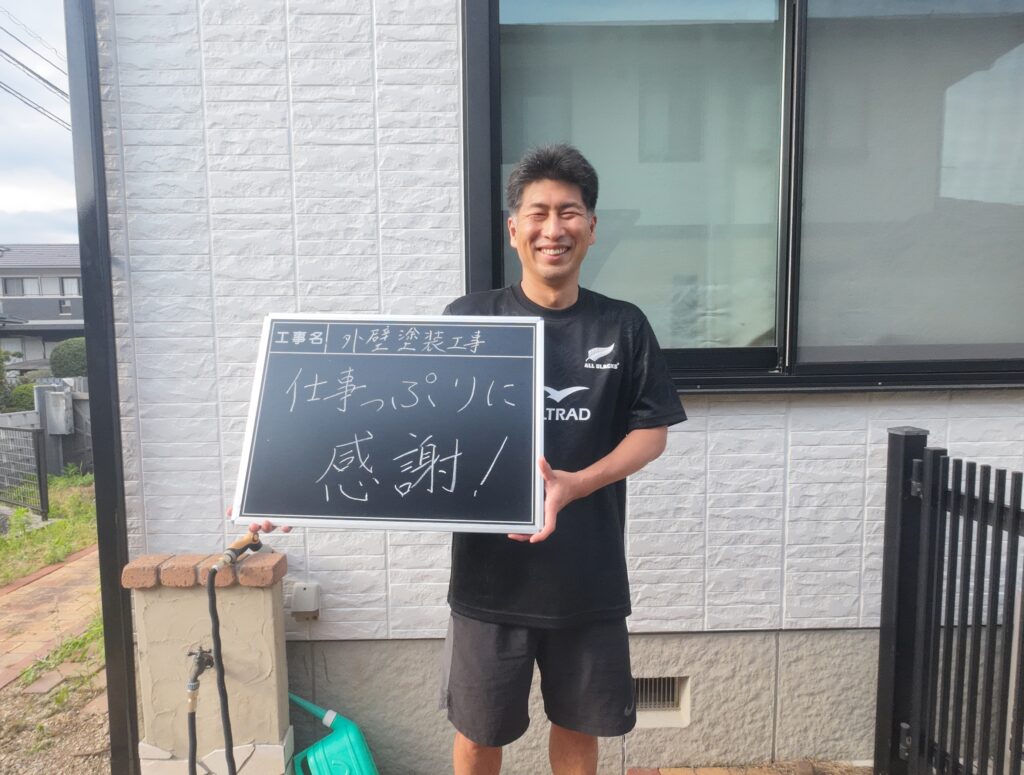 工事名 外壁塗装工事
仕事っぷりに
感謝!
ALL BLACKS
LTRAD